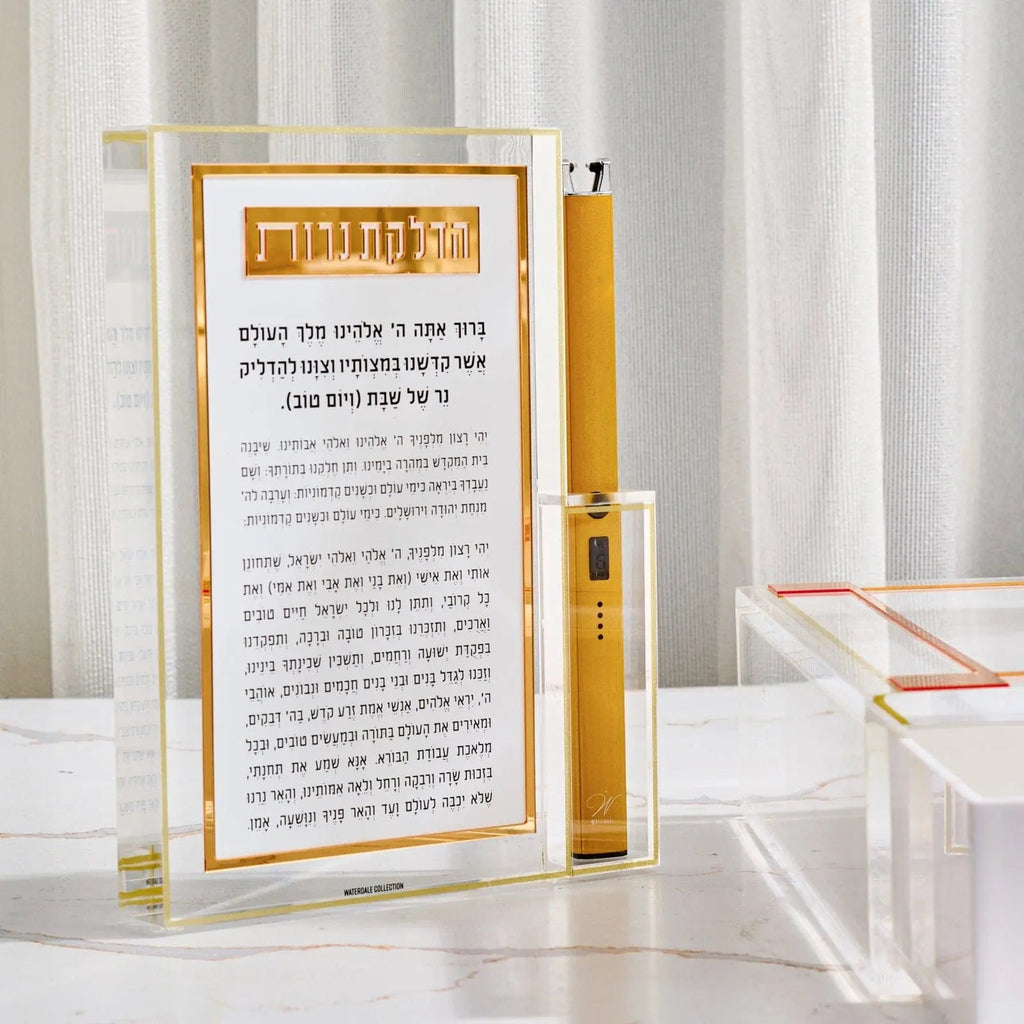 הדלקת נרות
בָּרוּךְ אַתָּה ה' אֱלֹהֵינוּ מֶלֶךְ הָעוֹלָם
אֲשֶׁר קִדְּשָׁנוּ בְּמִצְוֹתָיו וְצִוָּנוּ לְהַדְלִיק
נֵר שֶׁל שַׁבָּת (וְיוֹם טוֹב).
יְהִי רָצוֹן מִלְּפָנֶיךָ ה' אֱלֹהֵינוּ וֵאלֹהֵי אֲבוֹתֵינוּ. שֶׁיִּבָּנֶה
בֵּית הַמִּקְדָּשׁ בִּמְהֵרָה בְיָמֵינוּ. וְתֵן חֶלְקֵנוּ בְּתוֹרָתֶךָ: וְשָׁם
נַעֲבָדְךָ בְּיִרְאָה כִּימֵי עוֹלָם וּכְשָׁנִים קַדְמוֹנִיּוֹת: וְעָרְבָה לַה'
מִנְחַת יְהוּדָה וִירוּשָׁלָיִם. כִּימֵי עוֹלָם וּכְשָׁנִים קַדְמוֹנִיּוֹת:
יְהִי רָצוֹן מִלְּפָנֶיךָ, ה' אֱלֹהַי וֵאלֹהֵי יִשְׂרָאֵל, שֶׁתְּחוֹנֵן
אוֹתִי וְאֶת אִישִׁי (וְאֶת בָּנַי וְאֶת אָבִי וְאֶת אִמִּי) וְאֶת
כָּל קְרוֹבַי, וְתִתֵּן לָנוּ וּלְכָל יִשְׂרָאֵל חַיִּים טוֹבִים
וַאֲרֻכִּים, וְתִזְכְּרֵנוּ בְּזִכְרוֹן טוֹבָה וּבְרָכָה, וְתִפְקְדֵנוּ
בִּפְקֻדַּת יְשׁוּעָה וְרַחֲמִים, וְתַשְׁכִּין שְׁכִינָתְךָ בֵּינֵינוּ,
וְזַכֵּנוּ לְגַדֵּל בָּנִים וּבְנֵי בָנִים חֲכָמִים וּנְבוֹנִים, אוֹהֲבֵי
ה', יִרְאֵי אֱלֹהִים, אַנְשֵׁי אֱמֶת זֶרַע קֹדֶשׁ, בַּה' דְּבֵקִים,
וּמְאִירִים אֶת הָעוֹלָם בַּתּוֹרָה וּבְמַעֲשִׂים טוֹבִים, וּבְכָל
מְלֶאכֶת עֲבוֹדַת הַבּוֹרֵא. אָנָּא שְׁמַע אֶת תְּחִנָּתִי,
בִּזְכוּת שָׂרָה וְרִבְקָה וְרָחֵל וְלֵאָה אִמּוֹתֵינוּ, וְהָאֵר נֵרֵנוּ
שֶׁלֹּא יִכְבֶּה לְעוֹלָם וָעֶד וְהָאֵר פָּנֶיךָ וְנִוָּשֵׁעָה, אָמֵן.
WATERDALE COLLECTION
W